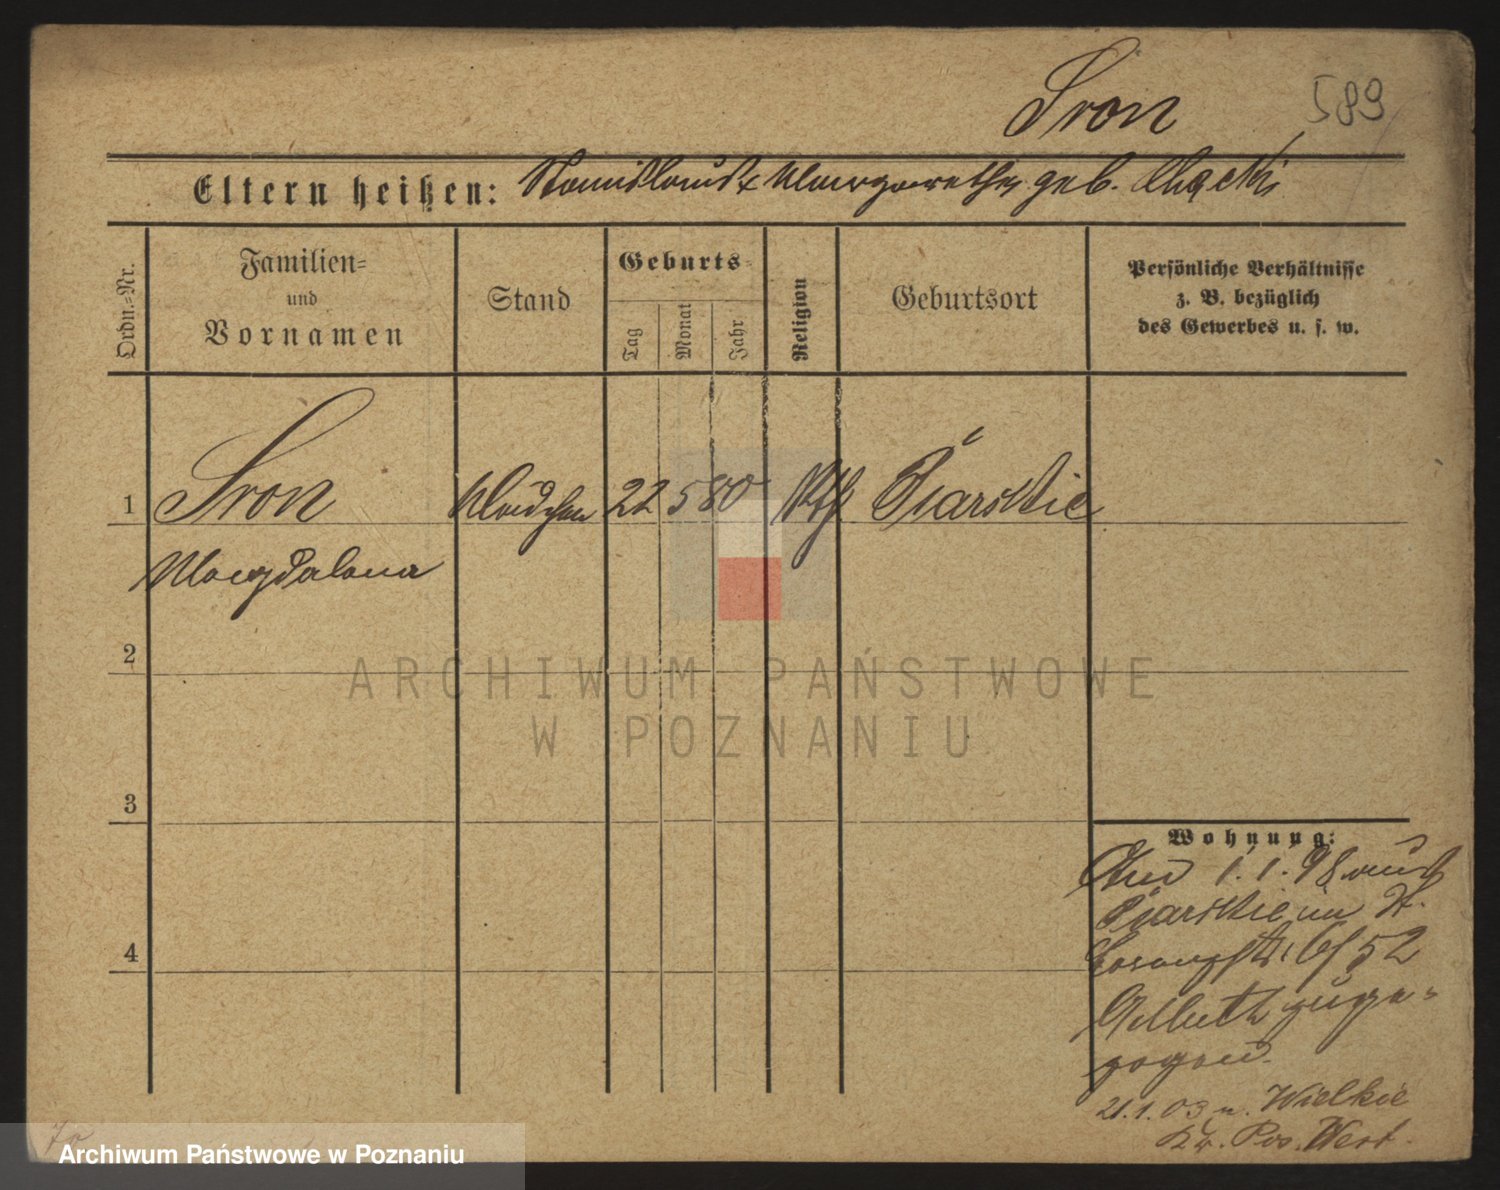 Sron
589
Eltern heißen: Stanislaus & Margarethe geb.
Ordn.-Nr.
Familien-
und
Vornamen
Stand
Geburts-
Tag
Monat
Jahr
Religion
Geburtsort
Persönliche Verhältnisse
z. B. bezüglich
des Gewerbes u. s. w.
1
Sron
Mädchen
22
5
80
Kth
Piarskie
Magdalena
2
ARCHIWUM PAŃSTWOWE
W POZNANIU
3
Wohnung:
Am 1.1.98 aus
Piarskie in
6/52
zuge-
zogen.
4
21.1.03 n. Wielkie
Kr. Pos. West.
Archiwum Państwowe w Poznaniu